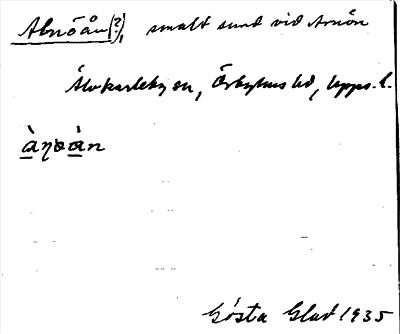 Abnöån(?), smalt sund vid Arnön
Älvkarleby sn, Örbyhus hd, Upps. l.
àŋɵàn
Gösta Glad 1935